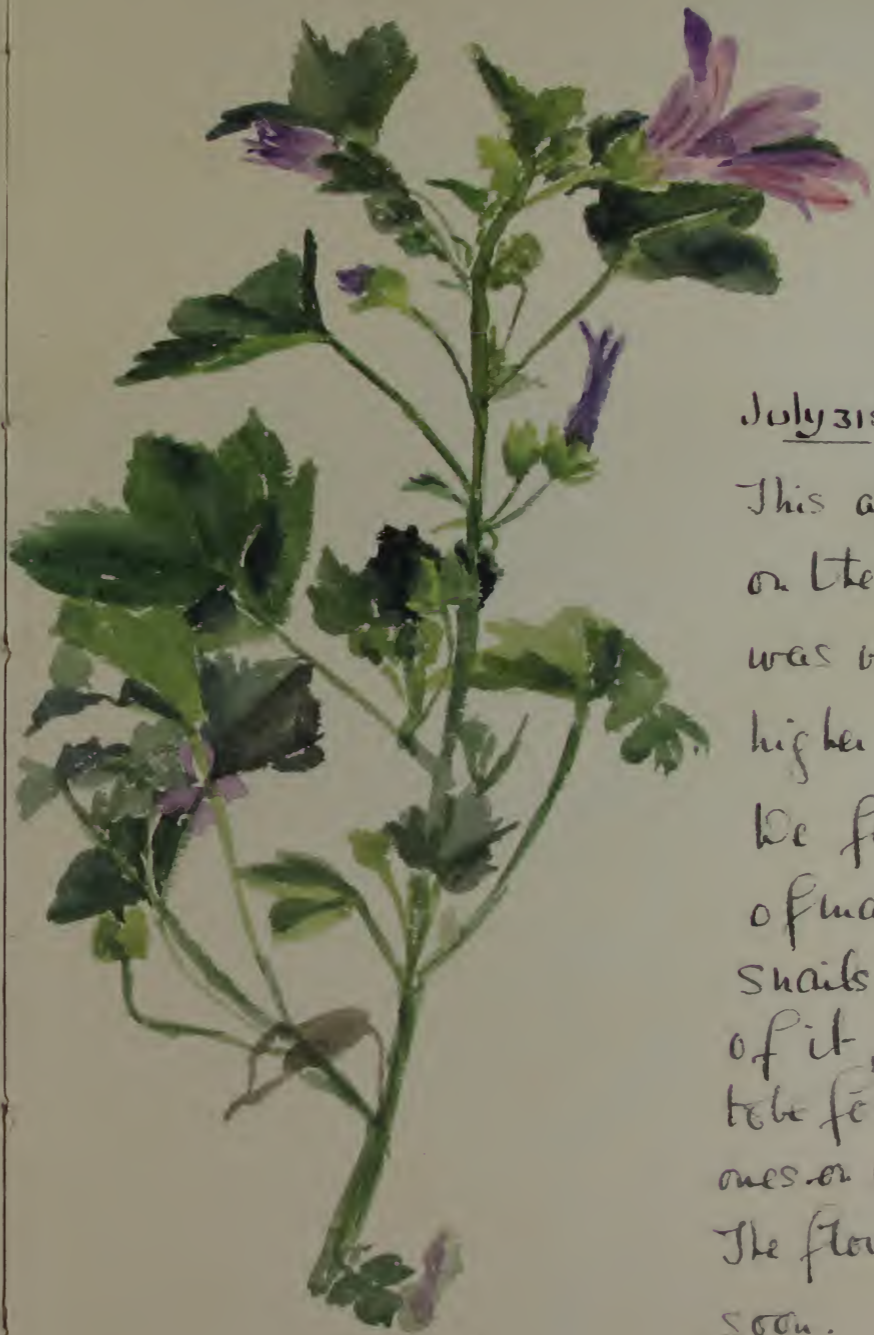 July 31s
This a
on the
was v
higher
We f
of ma
snails
of it
to be fo
ones on
The flow
soon.